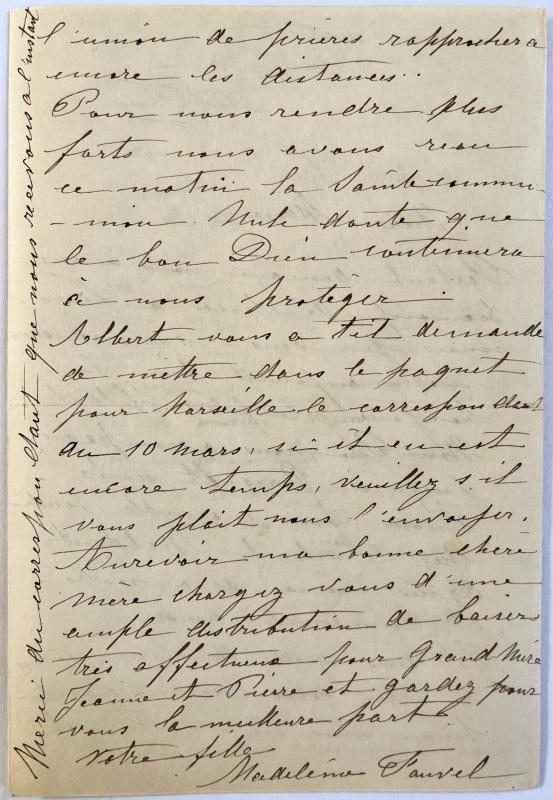 l'union de prières rapprochera
encore les distances..
Pour nous rendre plus
forts nous avons reçu
ce matin la Sainte commu-
-nion. Nul doute que
le bon Dieu continuera
à nous protéger.
Albert vous a t'il demandé
de mettre dans le paquet
pour Marseille le correspondant
du 10 mars, si il en est
encore temps, veuillez s'il
vous plait nous l'envoyer.
Aurevoir ma bonne chère
mère chargez vous d'une
ample distribution de baisers
très affectueux pour Grand Mère
Jeanne et Pierre et gardez pour
vous la meilleure part.
Votre fille
Madeleine Fauvel
Merci du correspondant que nous recevons a l'instant